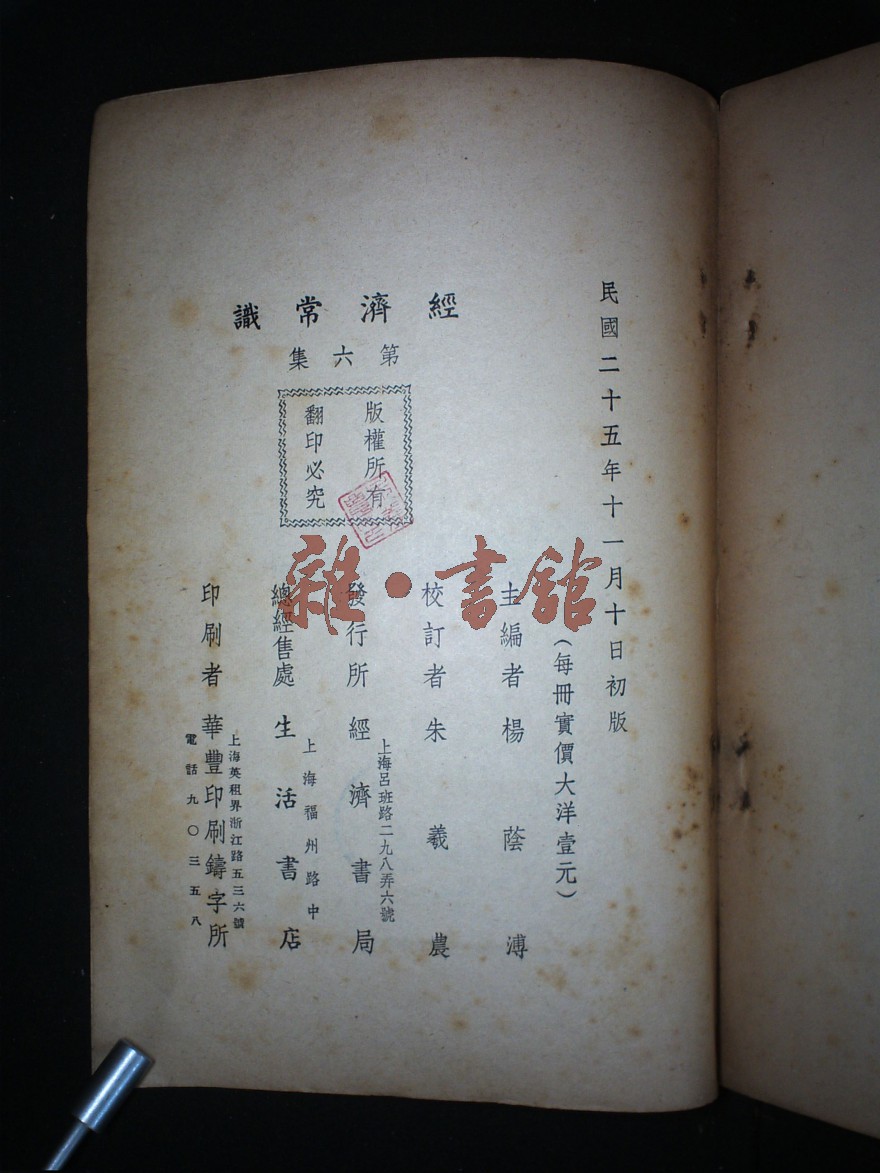 民國二十五年十一月十日初版
（每冊實價大洋壹元）
經濟常識
第六集
版權所有
翻印必究
主編者 楊蔭溥
校訂者 朱羲農
上海呂班路二九八弄六號
發行所 經濟書局
上海福州路中
總經售處 生活書店
上海英租界浙江路五三六號
印刷者 華豐印刷鑄字所
電話九〇三五八
雜·書館